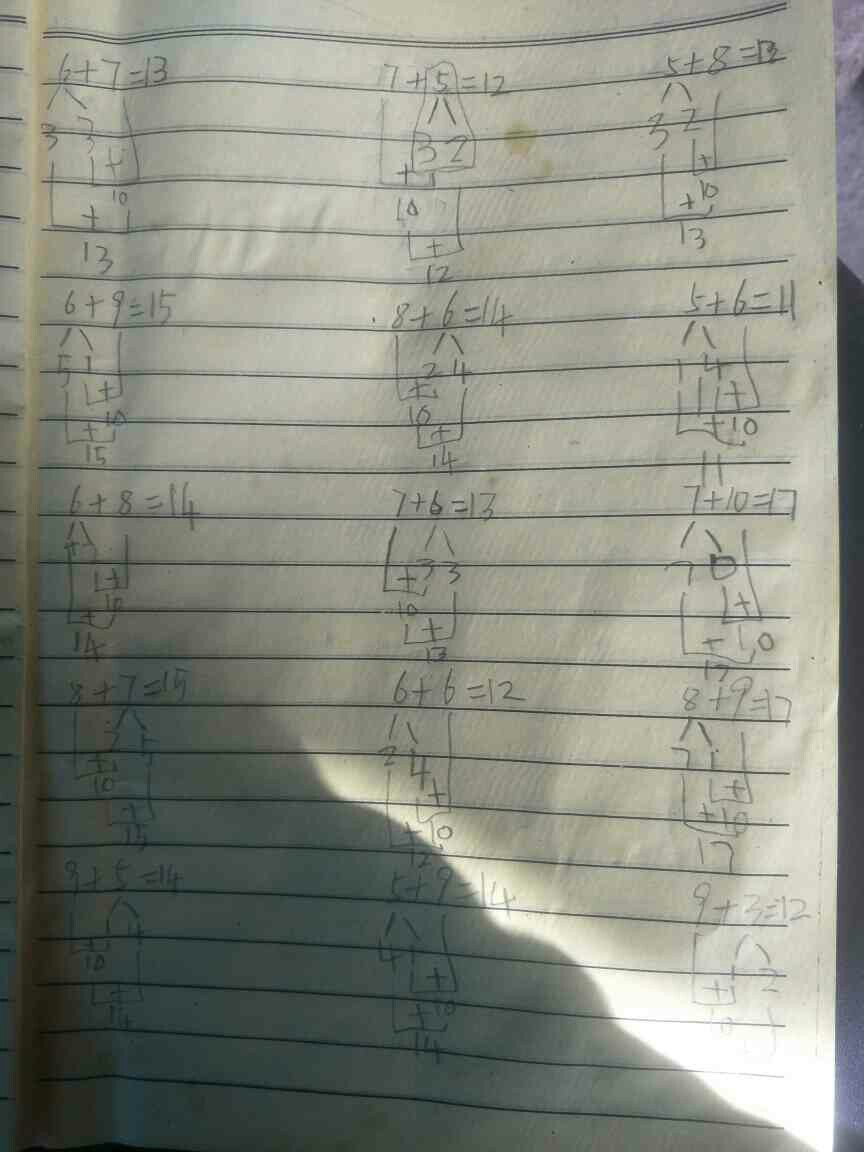 6+7=13 7+5=12 5+8=13
3 3 3 2 3 2
+ + +
10 10 10
+ + +
13 12 13
6+9=15 8+6=14 5+6=11
5 1 2 4 1 4
+ + +
10 10 10
+ + +
15 14 11
6+8=14 7+6=13 7+10=17
4 2 3 3 7 0
+ + +
10 10 10
+ + +
14 13 17
8+7=15 6+6=12 8+9=17
2 5 2 4 7 1
+ + +
10 10 10
+ + +
15 12 17
9+5=14 5+9=14 9+3=12
1 4 4 1 1 2
+ + +
10 10 10
+ +
14 14